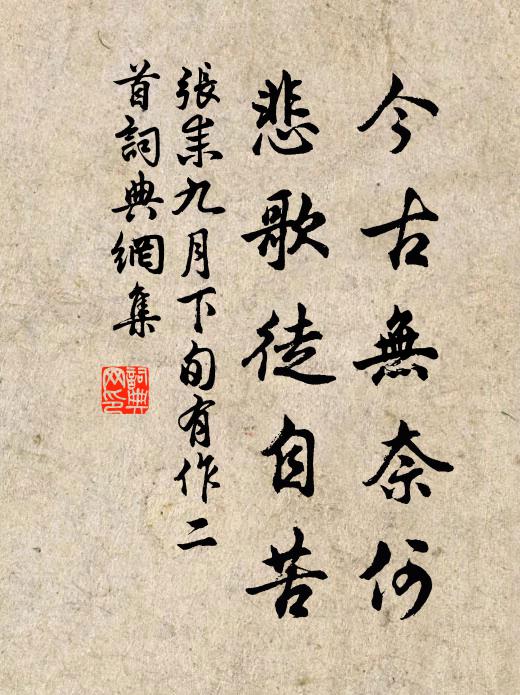 今古無奈何
悲歌徒自苦
張耒九月下旬有作二
首詞典網集
詞典
网印